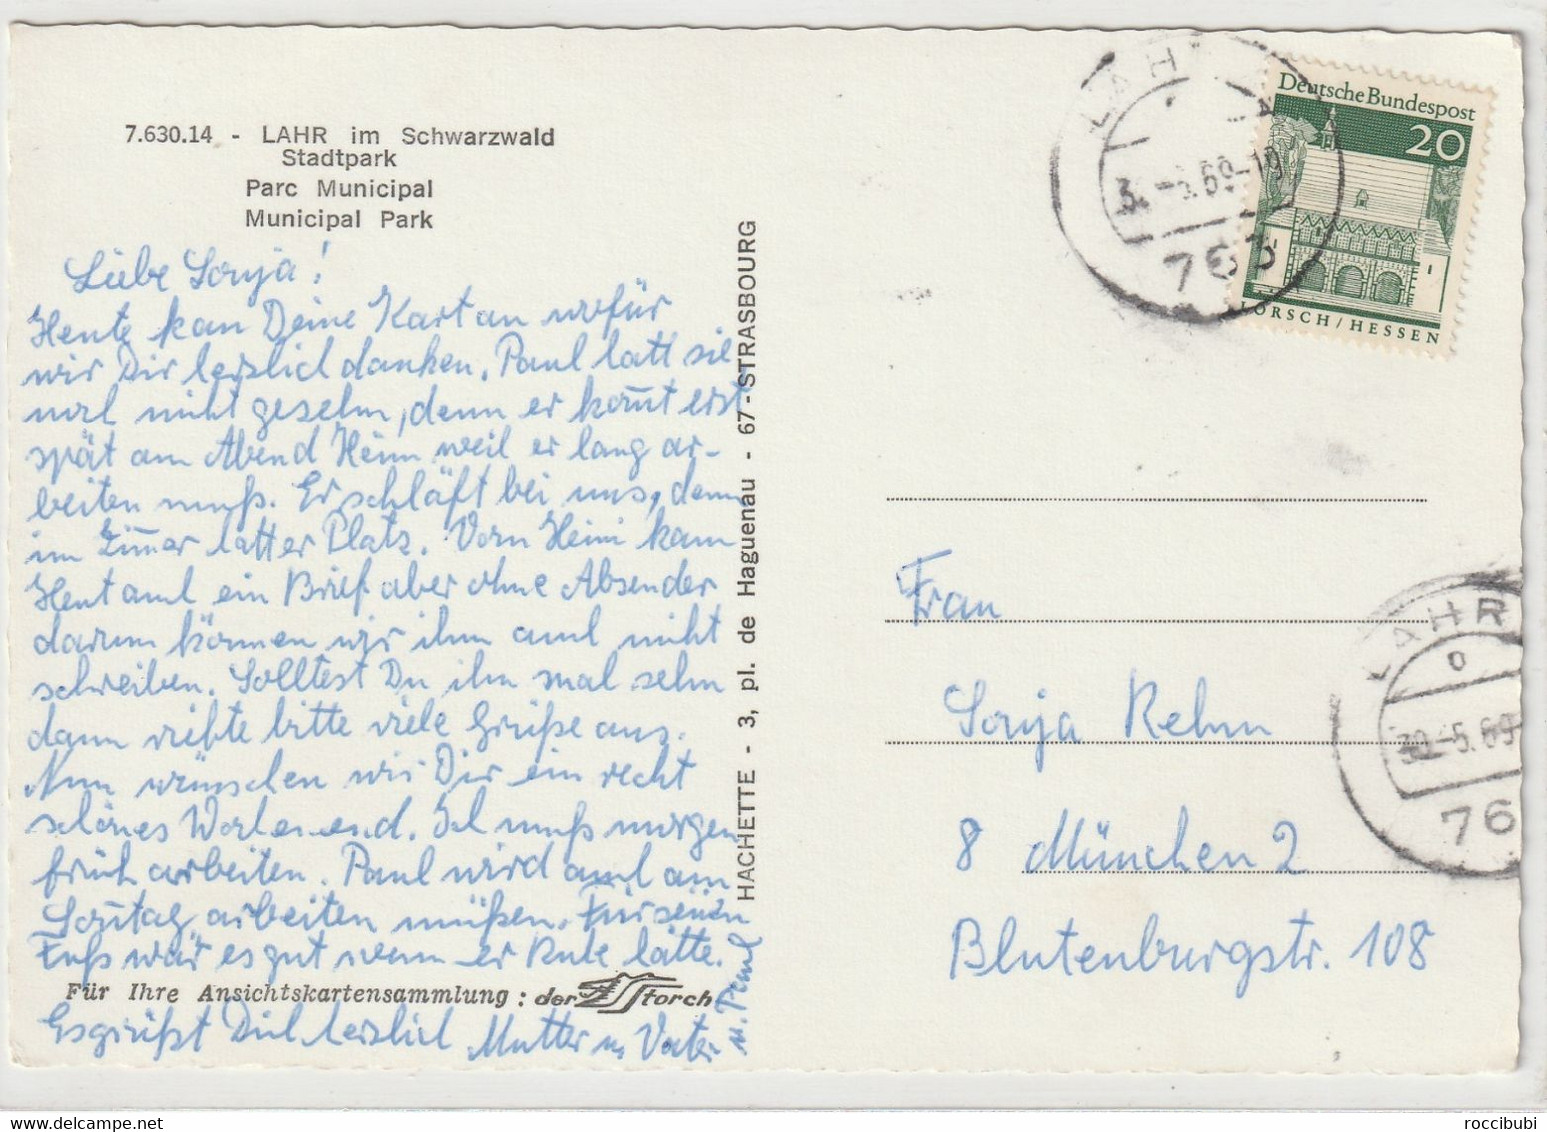 7.630.14 - LAHR im Schwarzwald
Stadtpark
Parc Municipal
Municipal Park
Liebe Sonja!
Heute kam Deine Kart an wofür
wir Dir herzlich danken. Paul hatt sie
mal nicht gesehn, denn er kom̄t erst
spät am Abend Heim weil er lang ar-
beiten muß. Er schläft bei uns, denn
im Zim̄er hatt er Platz. Vom Heini kam
Heut auch ein Brief aber ohne Absender
darum können wir ihm auch nicht
schreiben. Solltest Du ihn mal sehn
dann richte bitte viele Grüße aus.
Nun wünschen wir Dir ein recht
schönes Wochenend. Ich muß morgen
früh arbeiten. Paul wird auch am
Son̄tag arbeiten müßen. Für seinen
Fuß wär es gut wenn er Ruhe hätte.
Für Ihre Ansichtskartensammlung : der Storch
Es grüßt Dich herzlich Mutter u. Vater
u. Paul
HACHETTE - 3, pl. de Haguenau - 67 - STRASBOURG
LAHR
3 -5.69-19
763
Deutsche Bundespost
20
LORSCH/HESSEN
Frau
Sonja Rehm
8 München 2
Blutenburgstr. 108
LAHR
30.-5.69
76
roccibubi